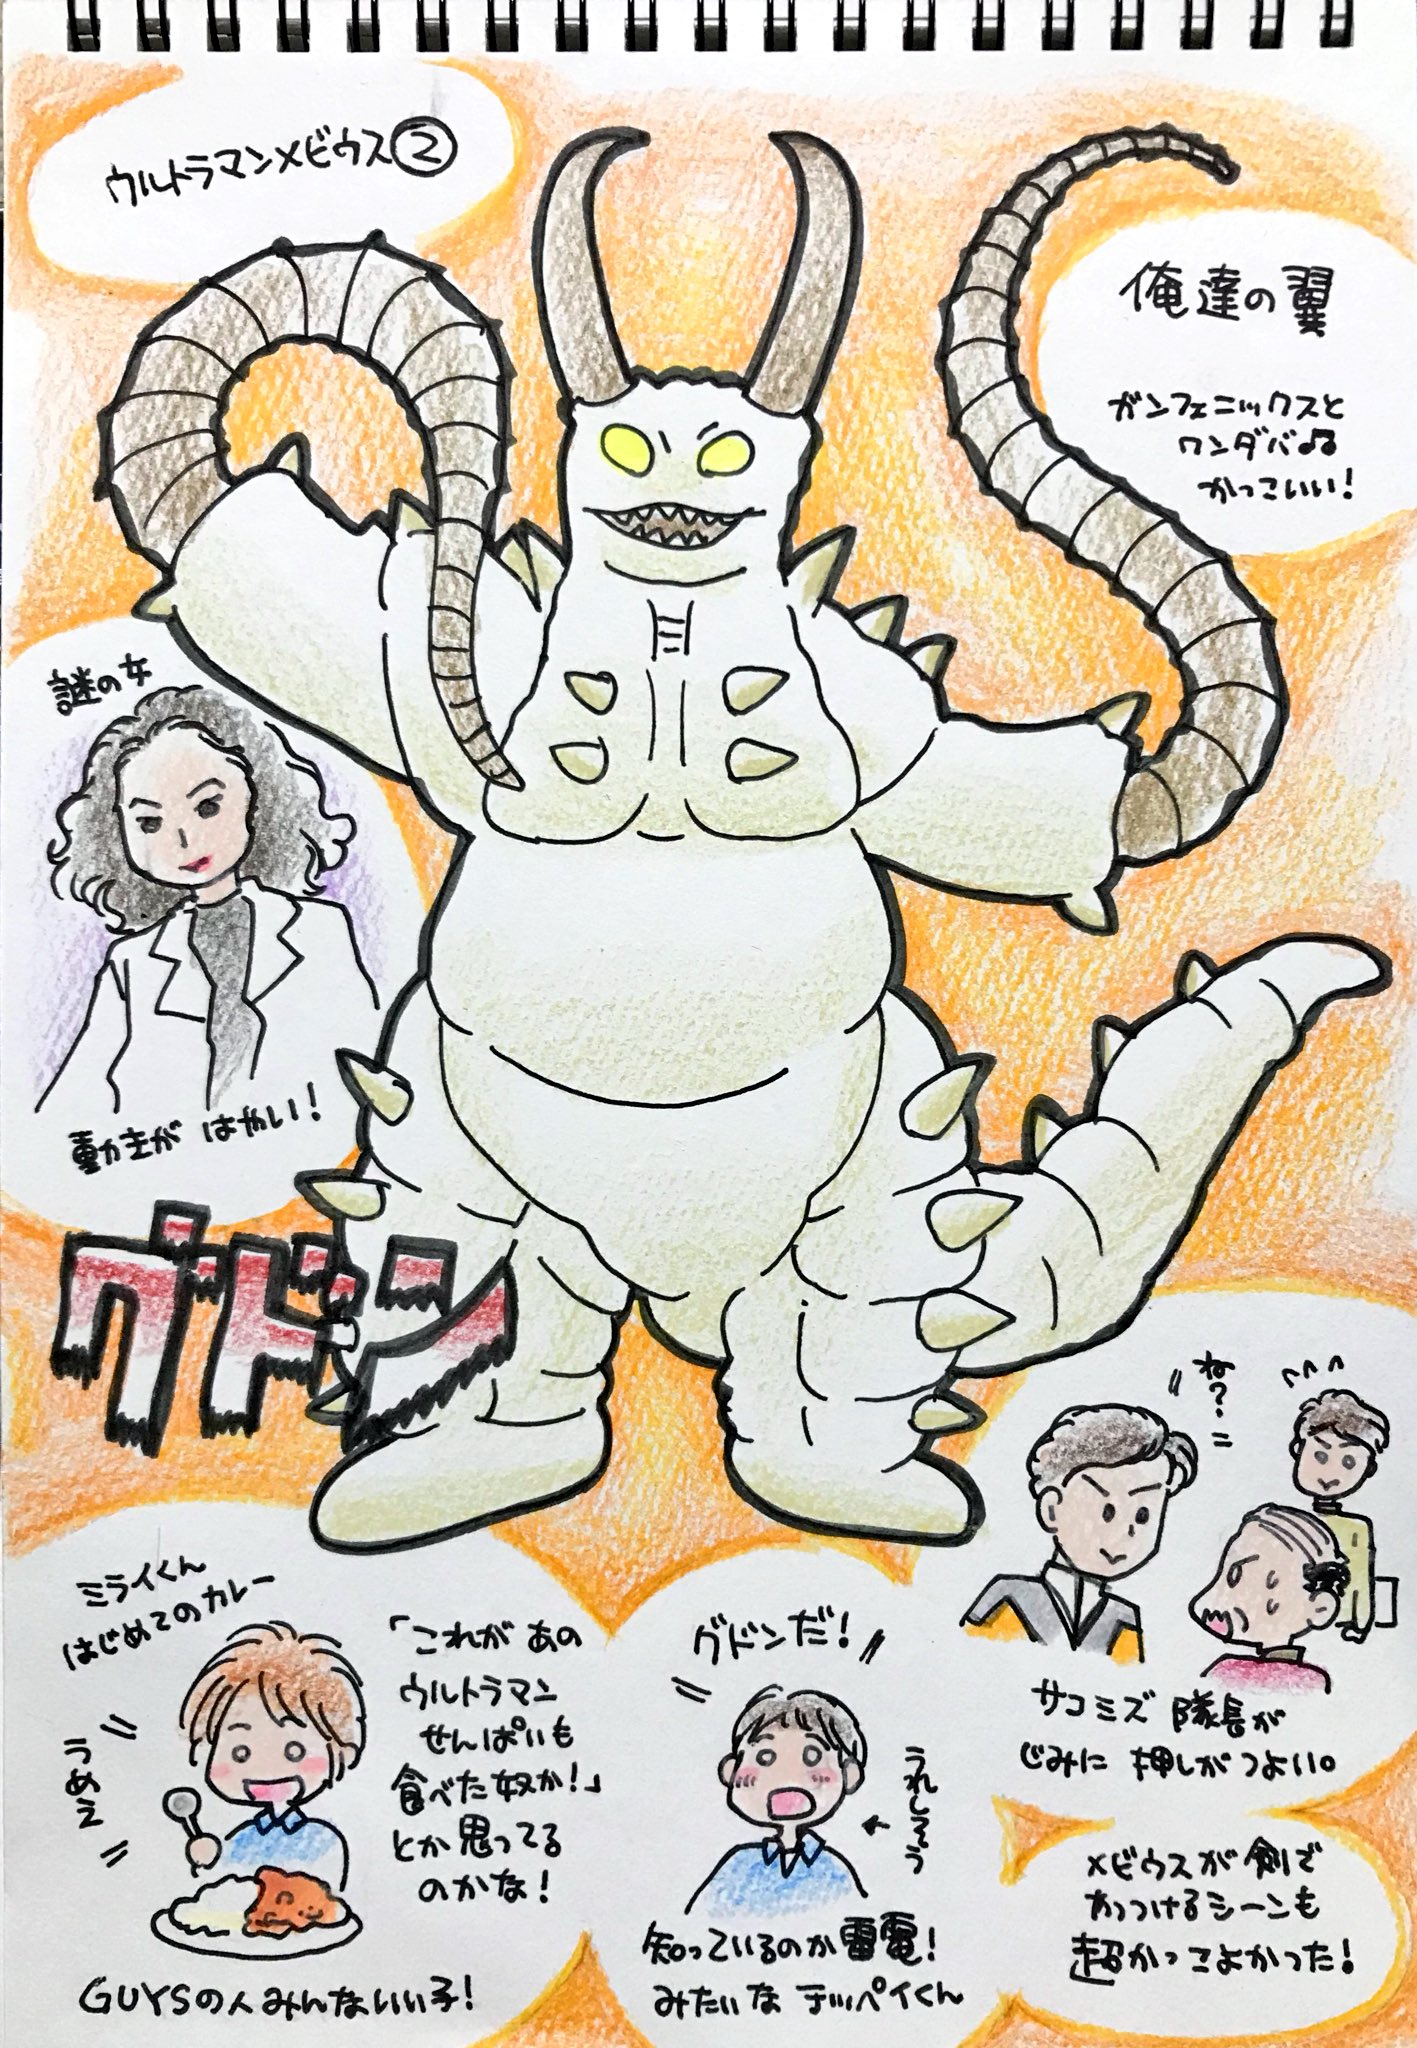 ウルトラマンメビウス②
俺達の翼
ガンフェニックスと
ワンダバ♫♫
かっこいい！
謎の女
動きが はやい！
グドン
ね？
ミライくん
はじめてのカレー
うめぇ
「これが あの
ウルトラマン
せんぱいも
食べた奴か！」
とか思ってる
のかな！
GUYSの人みんないい子！
グドンだ！
うれしそう
知っているのか雷電！
みたいな テッペイくん
サコミズ 隊長が
じみに 押しがつよい。
メビウスが 剣で
やっつけるシーンも
超かっこよかった！